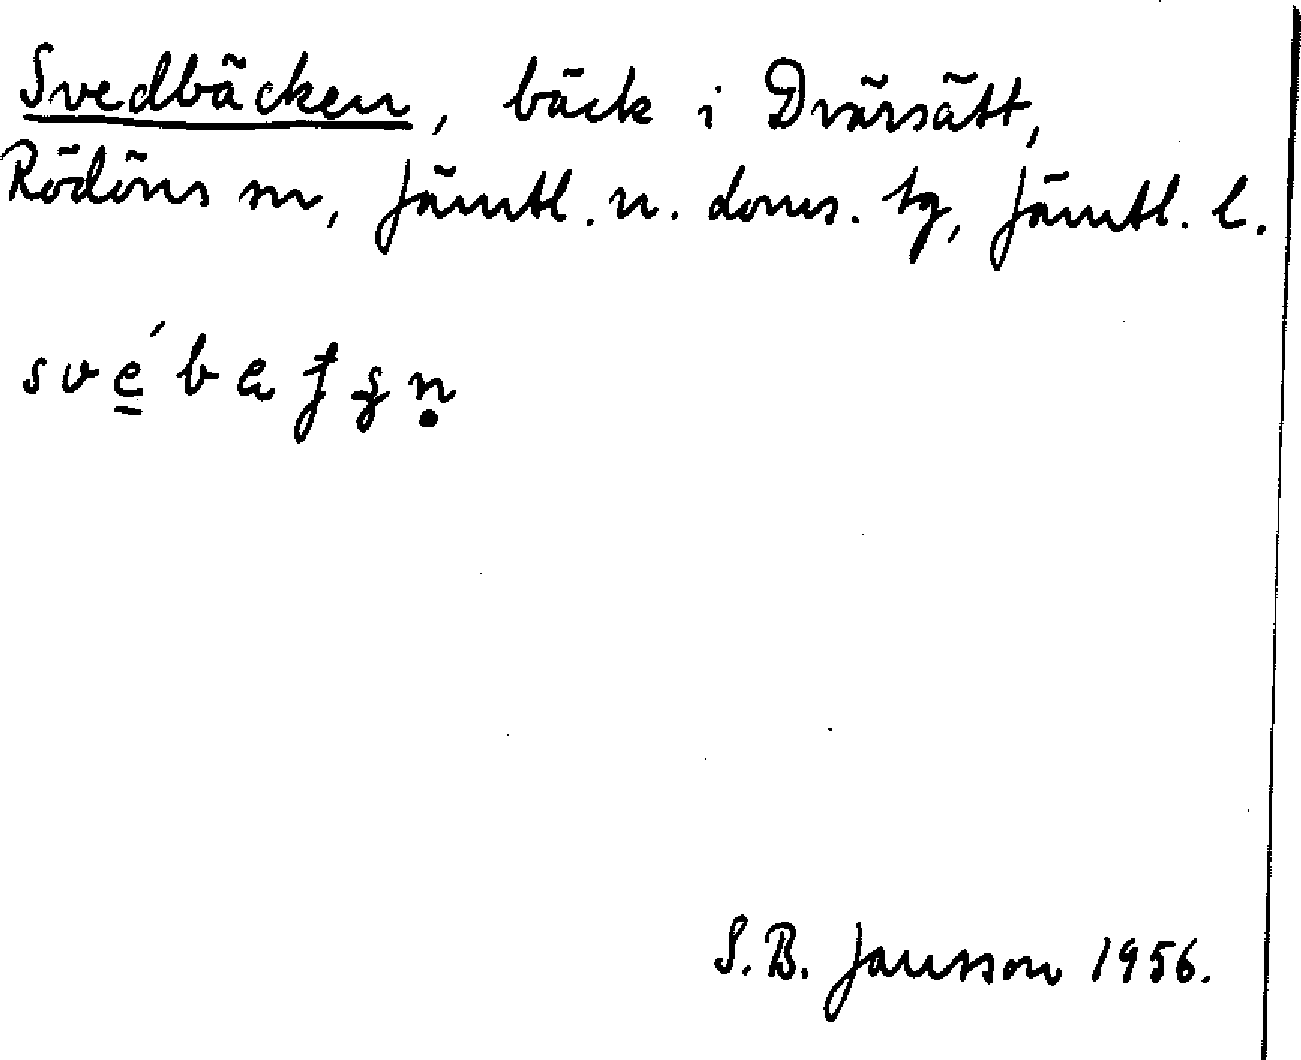 Svedbäcken, bäck i Dvärsätt,
Rödöns sn, Jämtl. n. doms. tg, Jämtl. l.
S. B. Jansson 1956.